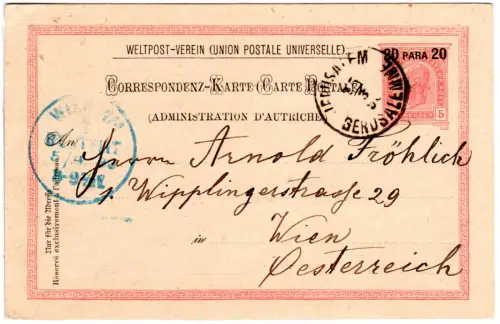 WELTPOST-VEREIN (UNION POSTALE UNIVERSELLE)
20 PARA 20
JERUSALEM
GERUSALEMME
CORRESPONDENZ-KARTE (CARTE POSTALE)
(ADMINISTRATION D'AUTRICHE)
5
WIEN
An
Herrn Arnold Fröhlich
1. Wipplingerstrasse 29
in Wien
Oesterreich
Nur für die Adresse
Réservé exclusivement à l'adresse